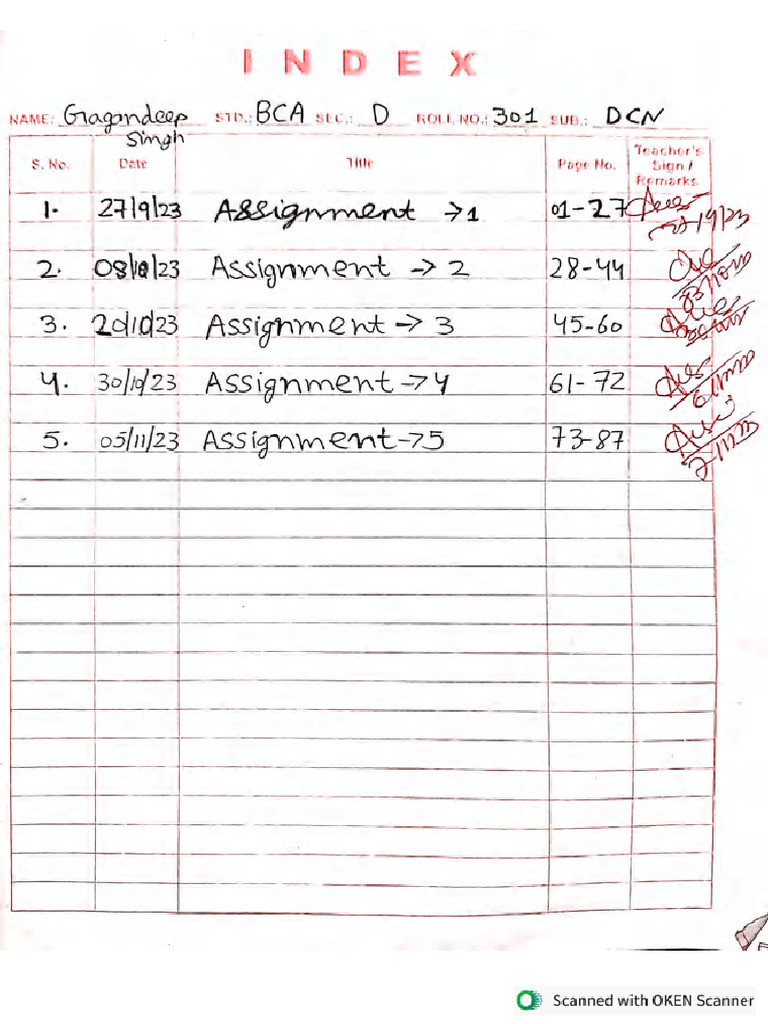 INDEX
NAME: Gagandeep Singh STD.: BCA SEC.: D ROLL NO.: 301 SUB.: DCN
S. No. Date Title Page No. Teacher's Sign / Remarks
1. 27/9/23 Assignment → 1 01-27
2. 08/10/23 Assignment → 2 28-44
3. 20/10/23 Assignment → 3 45-60
4. 30/10/23 Assignment → 4 61-72
5. 05/11/23 Assignment → 5 73-87
Scanned with OKEN Scanner